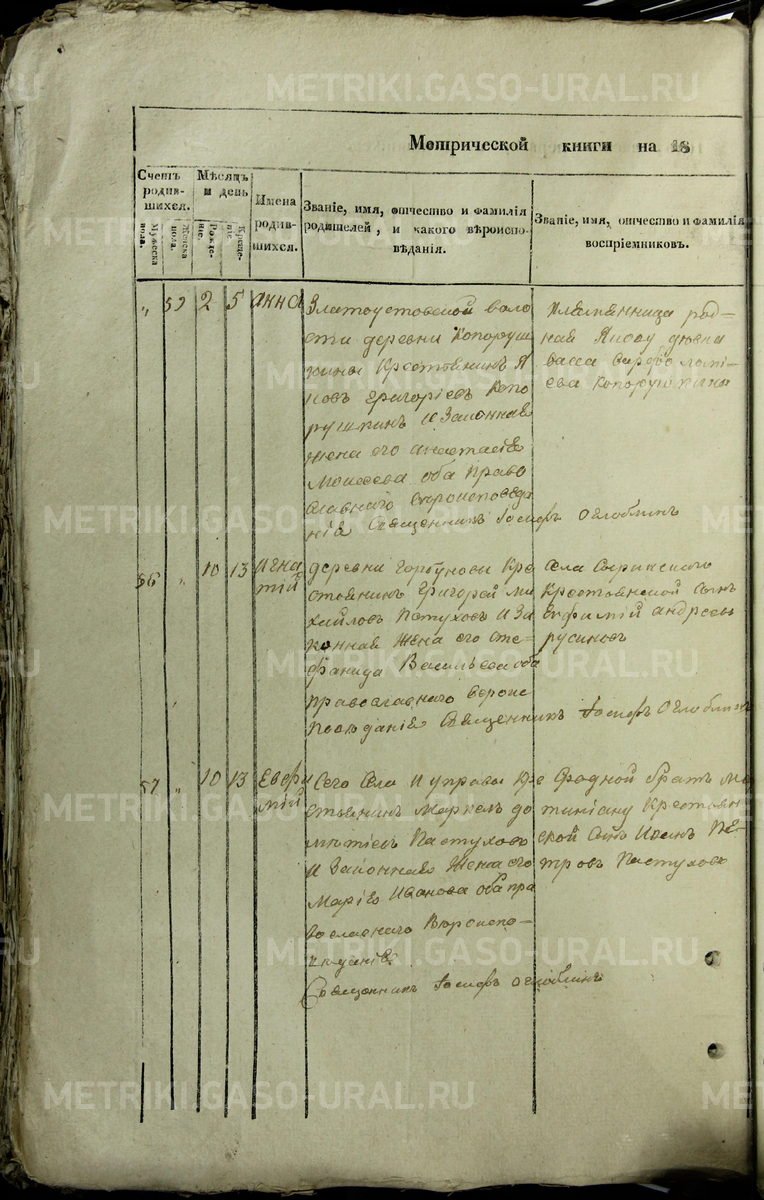 METRIKI.GASO-URAL.RU
Метрической книги на 18
Счетъ родив-шихся.
Мужеска пола.
Женска пола.
Мѣсяцъ и день
Рожде-ніе.
Креще-ніе
Имена родив-шихся.
Званіе, имя, отчество и фамилія
родителей, и какого вѣроиспо-
вѣданія.
Званіе, имя, отчество и фамилія
воспріемниковъ.
" 59 2 5 Анна
Златоустовской воло
сти деревни Копоруш
кины Крестьянинъ Я
ковъ Григоріевъ Копо
рушкинъ и Законная
жена его Анастасія
Моисеева оба Право
славнаго вероисповеда
нія Священникъ Іосифъ Оглоблинъ
племянница род=
ная
васса варфоломѣ=
ева Копорушкина
56 " 10 13 Игна
тій
деревни Горбуновой Кре
стьянинъ Григорей Ми
хайловъ Петуховъ и За
конная жена его Сте=
фанида Васильева оба
православнаго вероис
поведанія Священникъ Іосифъ Оглоблинъ
Села Сыринскаго
Крестьянской сынъ
Евфимій Андреевъ
Русиновъ
57 " 10 13 Евфи
мій
Сего Села и управы Кре
стьянинъ Маркелъ до
мѣтіевъ Пастуховъ
и Законная жена его
Марія Иванова оба пра
вославнаго Вѣроиспо=
вѣданія
Священникъ Іосифъ Оглоблинъ
родной братъ
Крестьян
ской сынъ Иванъ Пе=
тровъ Пастуховъ